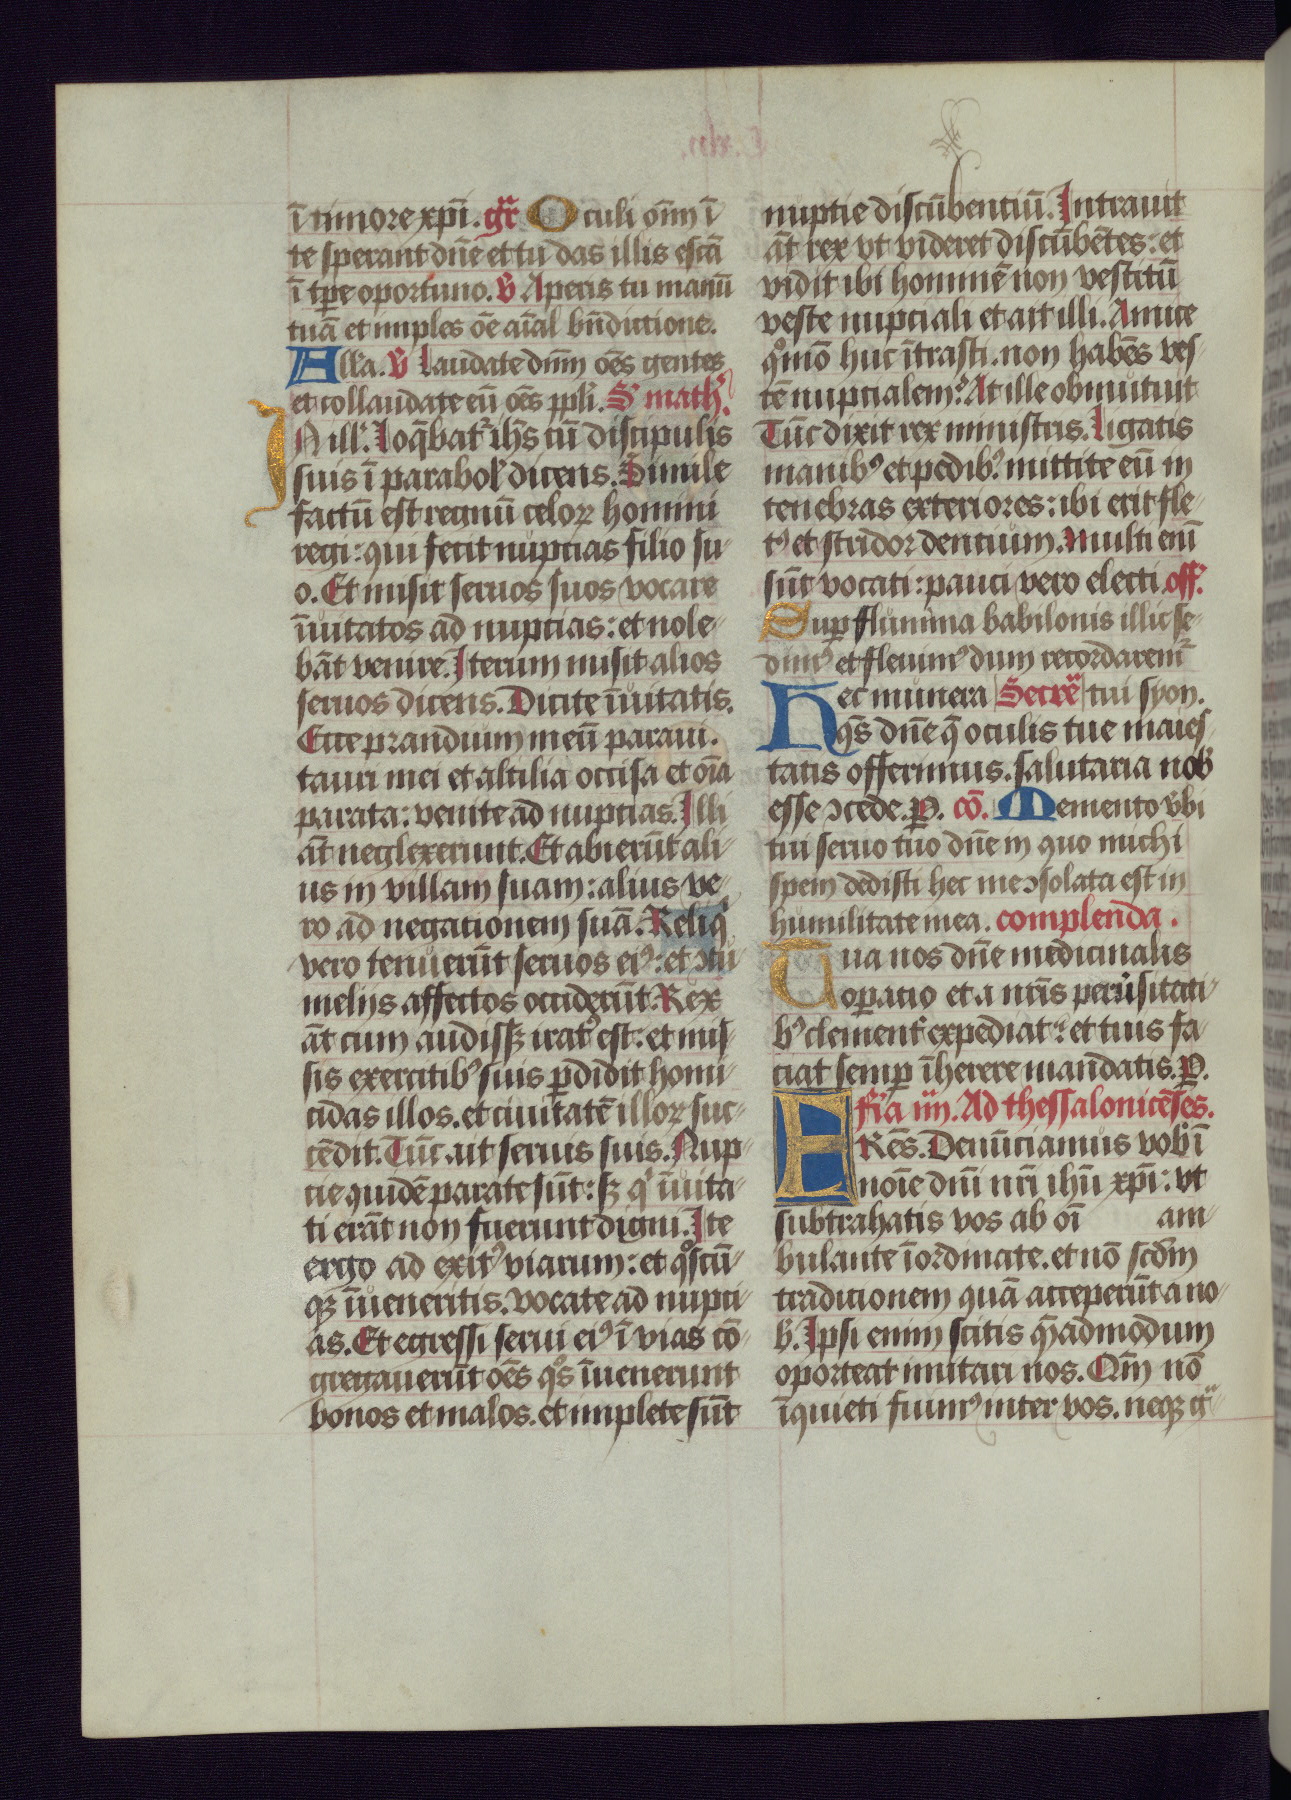 ī timore xp̄i. gr̄ Oculi om̄ī ī
te sperant dn̄e et tu das illis escā
ī tp̄e oportuno. v̄ Aperis tu manū
tuā et imples oē aīal bn̄dictione.
Alla. v̄ Laudate dn̄m oēs gentes
et collaudate eū oēs ppl̄i. S' math'.
IN ill'. Loq̄bat' ih̄s cū discipulis
suis ī parabol' dicens. Simile
factū est regnū celoꝝ homini
regi: qui fecit nuptias filio su-
o. Et misit seruos suos vocare
īuitatos ad nuptias: et nole-
bāt venire. Iterum misit alios
seruos dicens. Dicite īuitatis.
Ecce prandium meū paraui.
tauri mei et altilia occisa et oīa
parata: venite ad nuptias. Illi
āt neglexerunt. Et abierūt ali-
us in villam suam: alius ve-
ro ad negationem suā. Reliq'
vero tenuerūt seruos eiꝰ: et ↄtu-
melijs affectos occiderūt. Rex
āt cum audissꝫ iratꝰ est: et mis-
sis exercitibꝰ suis ꝑdidit homi-
cidas illos. et ciuitatē illoꝝ suc-
cēdit. Tūc ait seruis suis. Nup-
cie quidē parate sūt: sꝫ q' īuita-
ti erāt non fuerunt digni. Ite
ergo ad exitꝰ viarum: et qͦscū-
qꝫ īueneritis. vocate ad nupci-
as. Et egressi serui eiꝰ ī vias cō-
gregauerūt oēs qͦs īuenerunt
bonos et malos. et implete sūt
nuptie discūbentiū. Intrauit
āt rex vt videret discūbētes: et
vidit ibi hominē non vestitū
veste nuptiali et ait illi. Amice
qͦmō huc ītrasti. non habēs ves-
tē nuptialem? At ille obmutuit
Tūc dixit rex ministris. Ligatis
manibꝰ et pedibꝰ mittite eū in
tenebras exteriores: ibi erit fle-
tꝰ et stridor dentium. Multi enī
sūt vocati: pauci vero electi. off'.
Suꝑ flumina babilonis illic se-
dimꝰ et fleuimꝰ dum recordarem'
Hec munera Secre' tui syon.
q̄s dn̄e q̄ oculis tue maies-
tatis offerimus. salutaria nob'
esse ↄcede. P. cō. Memento v̄bi
tui seruo tuo dn̄e in quo michi
spem dedisti hec me ↄsolata est in
humilitate mea. complenda.
Tua nos dn̄e medicinalis
oꝑatio et a nr̄is peruersitati-
bꝰ clement' expediat: et tuis fa-
ciat semꝑ īherere mandatis. P.
fr̄ia iiij. Ad thessalonicēses.
FRēs. Denūciamus vob' ī
noīe dn̄i nr̄i ih̄u xp̄i: vt
subtrahatis vos ab oī am-
bulante īordinate. et nō scd̄m
traditionem quā acceperūt a no-
b'. Ipsi enim scitis q̄admodum
oporteat imitari nos. Qm̄ nō
īquieti fuimꝰ inter vos. neqꝫ g-